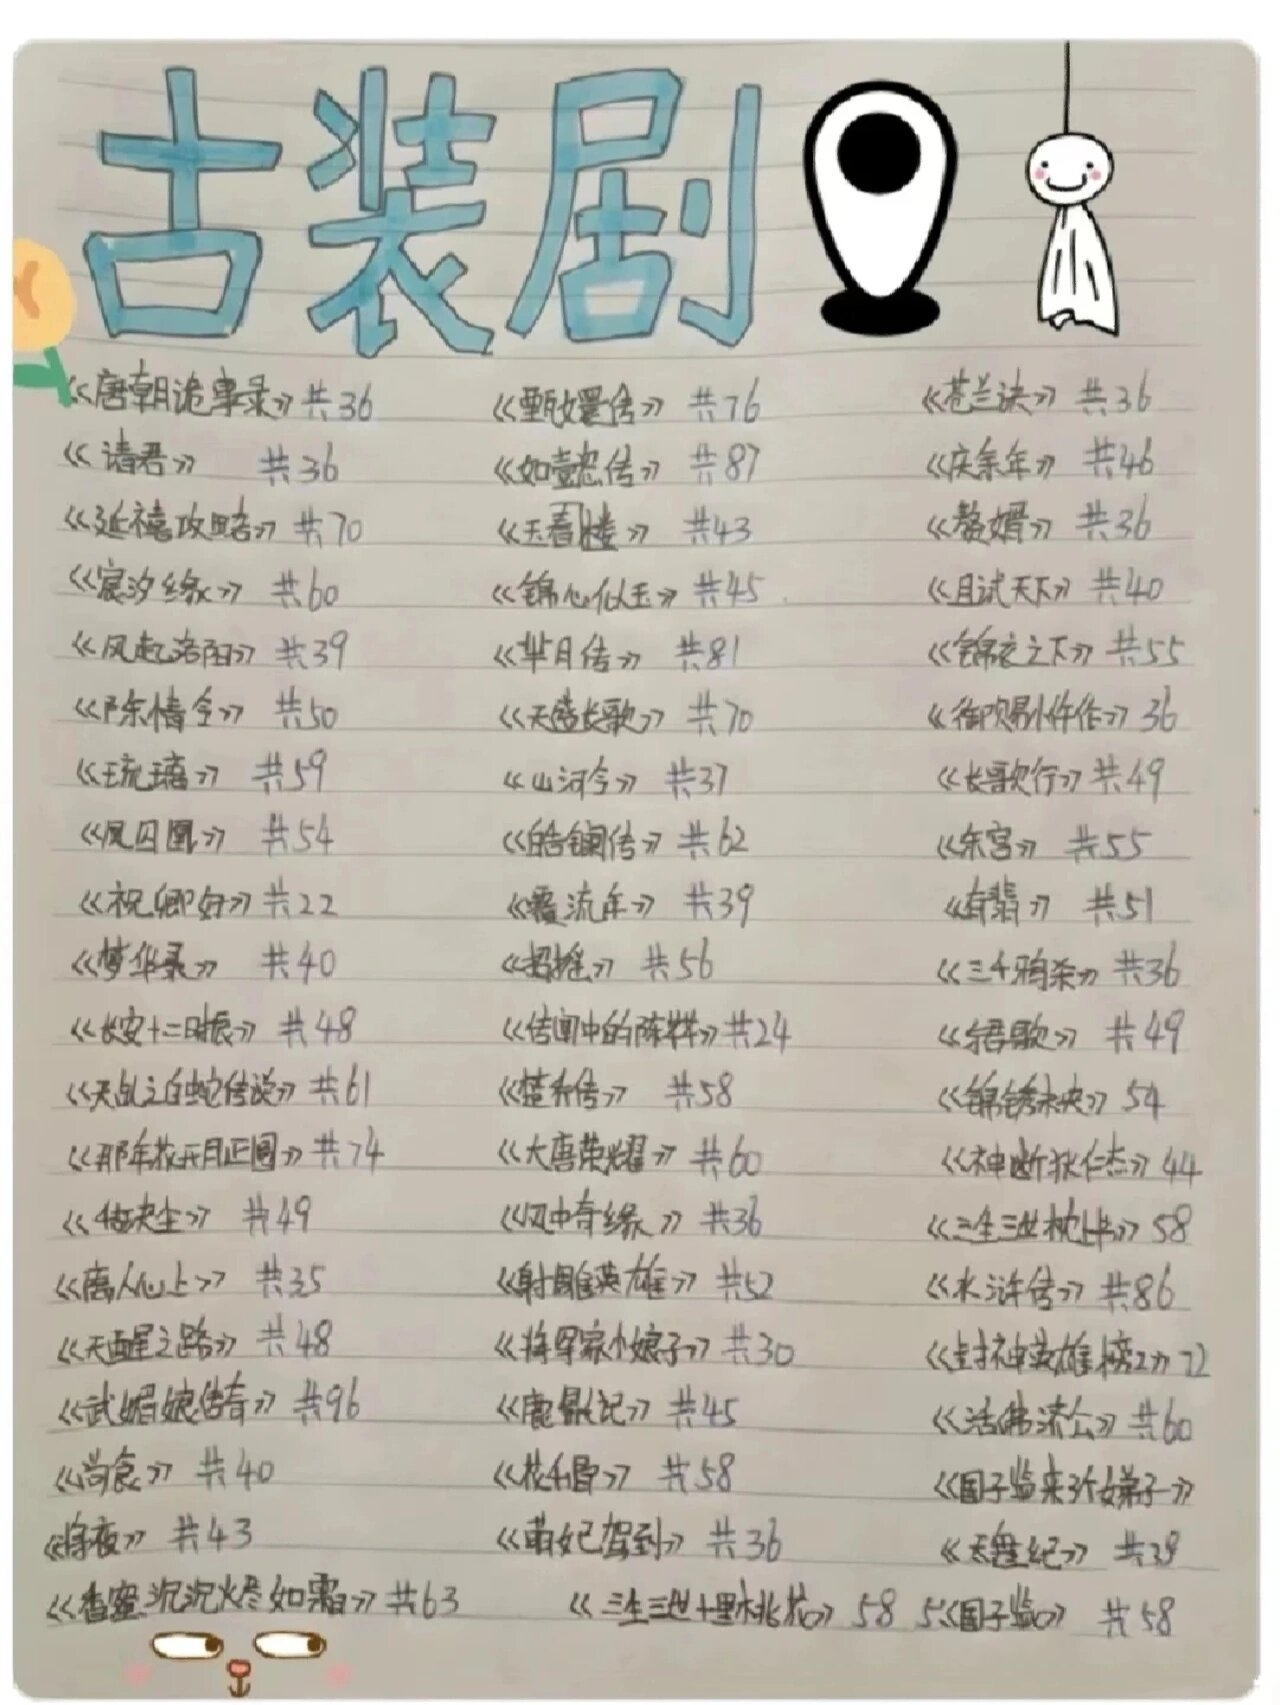 古装剧
《唐朝诡事录》共36 《甄嬛传》共76 《苍兰诀》共36
《请君》共36 《如懿传》共87 《庆余年》共46
《延禧攻略》共70 《玉楼春》共43 《赘婿》共36
《宸汐缘》共60 《锦心似玉》共45 《且试天下》共40
《风起洛阳》共39 《芈月传》共81 《锦衣之下》共55
《陈情令》共50 《天盛长歌》共70 《御赐小仵作》36
《琉璃》共59 《山河令》共37 《长歌行》共49
《凤囚凰》共54 《皓镧传》共62 《东宫》共55
《祝卿好》共22 《覆流年》共39 《有翡》共51
《梦华录》共40 《招摇》共56 《三千鸦杀》共36
《长安十二时辰》共48 《传闻中的陈芊芊》共24 《与君歌》共49
《天乩之白蛇传说》共61 《楚乔传》共58 《锦绣未央》54
《那年花开月正圆》共74 《大唐荣耀》共60 《神断狄仁杰》44
《千古玦尘》共49 《风中奇缘》共36 《三生三世枕上书》58
《离人心上》共35 《射雕英雄》共52 《水浒传》共86
《天醒之路》共48 《将军家小娘子》共30 《封神英雄榜2》72
《武媚娘传奇》共96 《鹿鼎记》共45 《活佛济公》共60
《尚食》共40 《花千骨》共58 《国子监来了个女弟子》
《将夜》共43 《萌妃驾到》共36 《天舞纪》共39
《香蜜沉沉烬如霜》共63 《三生三世十里桃花》58 《国子监》共58